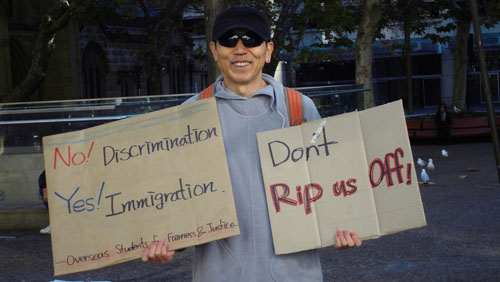 No! Discrimination
Yes! Immigration.
- Overseas Students for Fairness & Justice
Dont
Rip us Off!